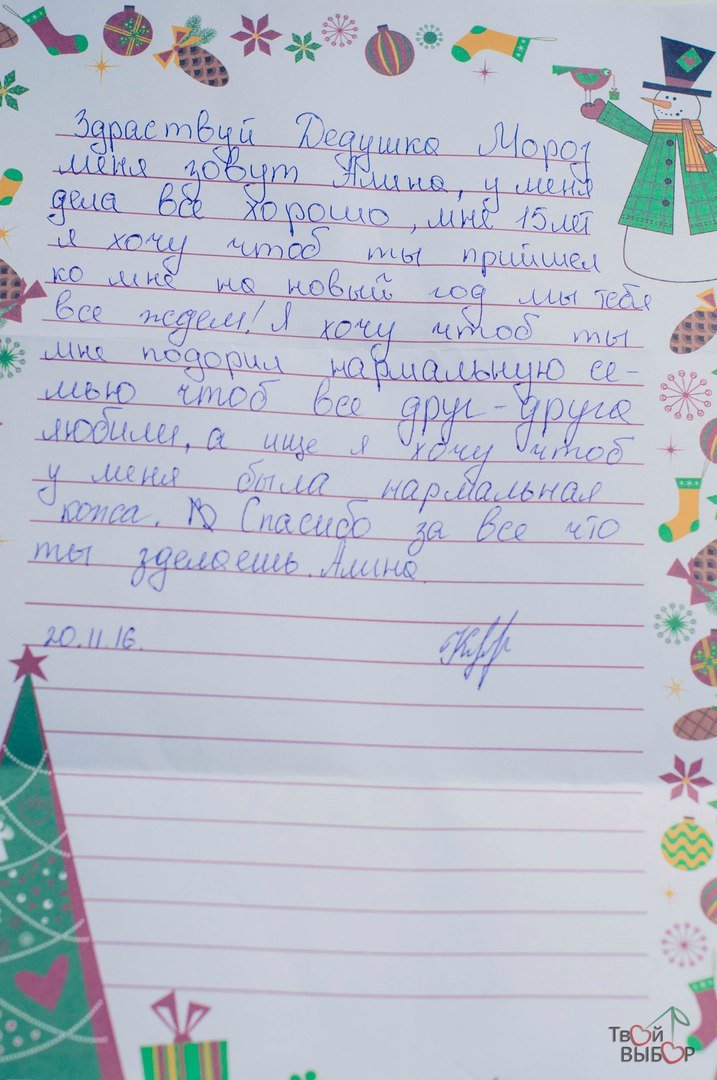 Здраствуй Дедушка Мороз
меня зовут Алина, у меня
дела все хорошо, мне 15 лет
я хочу чтоб ты пришел
ко мне на новый год мы тебя
все ждем! Я хочу чтоб ты
мне подорил нармальную се-
мью чтоб все друг-друга
любили, а ище я хочу чтоб
у меня была нармальная
Спасибо за все что
ты зделаешь. Алина.
20.11.16.
Твой
ВЫБОР